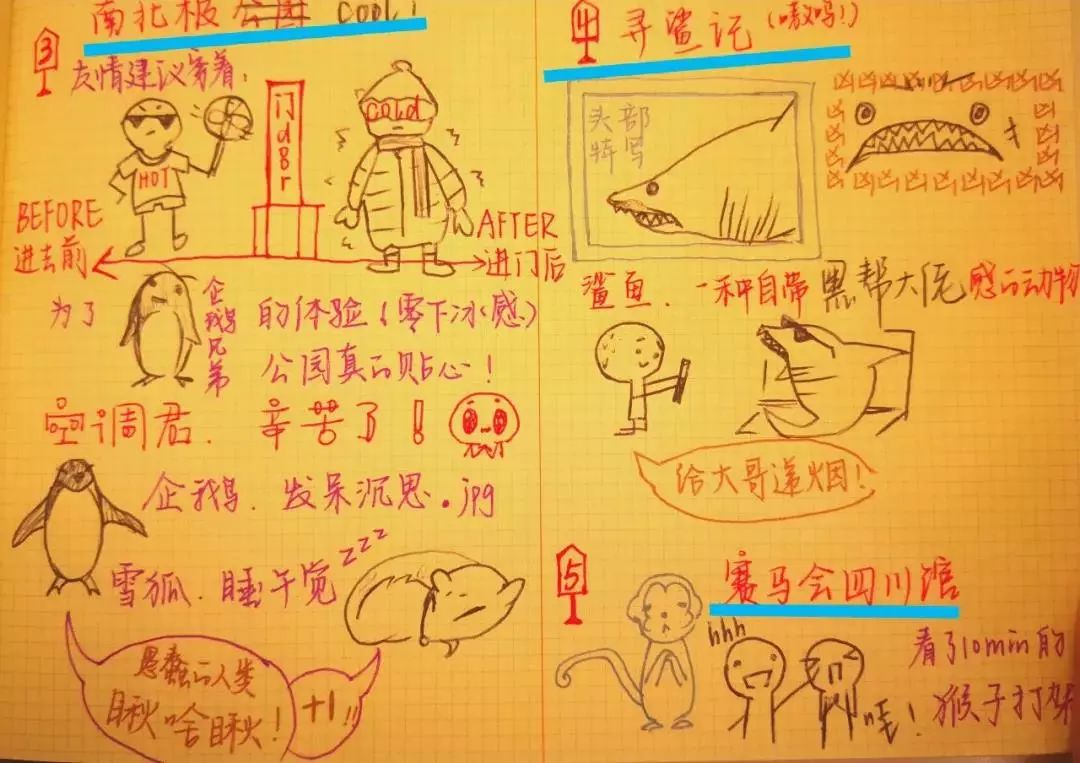 3
南北极公园 cool!
友情建议穿着.
HOT
门door
cold
BEFORE
进去前
AFTER
进门后
为了
企鹅兄弟
的体验(零下冰感)
公园真的贴心!
空调君. 辛苦了!
企鹅. 发呆沉思.jpg
雪狐. 睡午觉
zzz
愚蠢的人类
瞅啥瞅!
+1!!
4
寻鲨记(嗷呜!)
头部
特写
凶凶凶凶凶凶凶凶凶
鲨鱼. 一种自带黑帮大佬感的动物
给大哥递烟!
5
赛马会四川馆
hhh
看了10min的
猴子打架
哇!